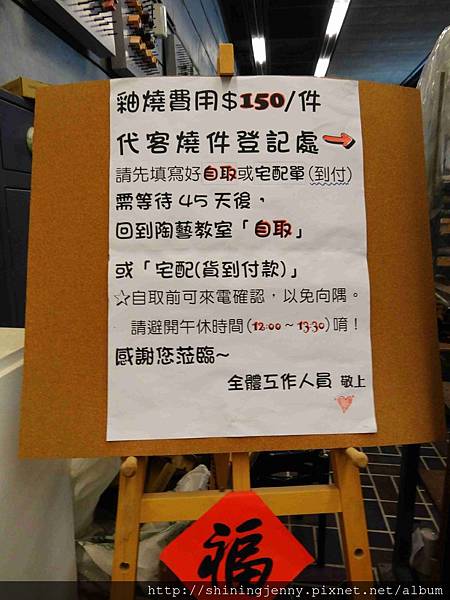 釉燒費用$150/件
代客燒件登記處→
請先填寫好自取或宅配單(到付)
需等待 45 天後，
回到陶藝教室「自取」
或「宅配(貨到付款)」
☆自取前可來電確認，以免向隅。
請避開午休時間(12:00~13:30)唷！
感謝您蒞臨~
全體工作人員 敬上
福
http://shiningjenny.pixnet.net/album